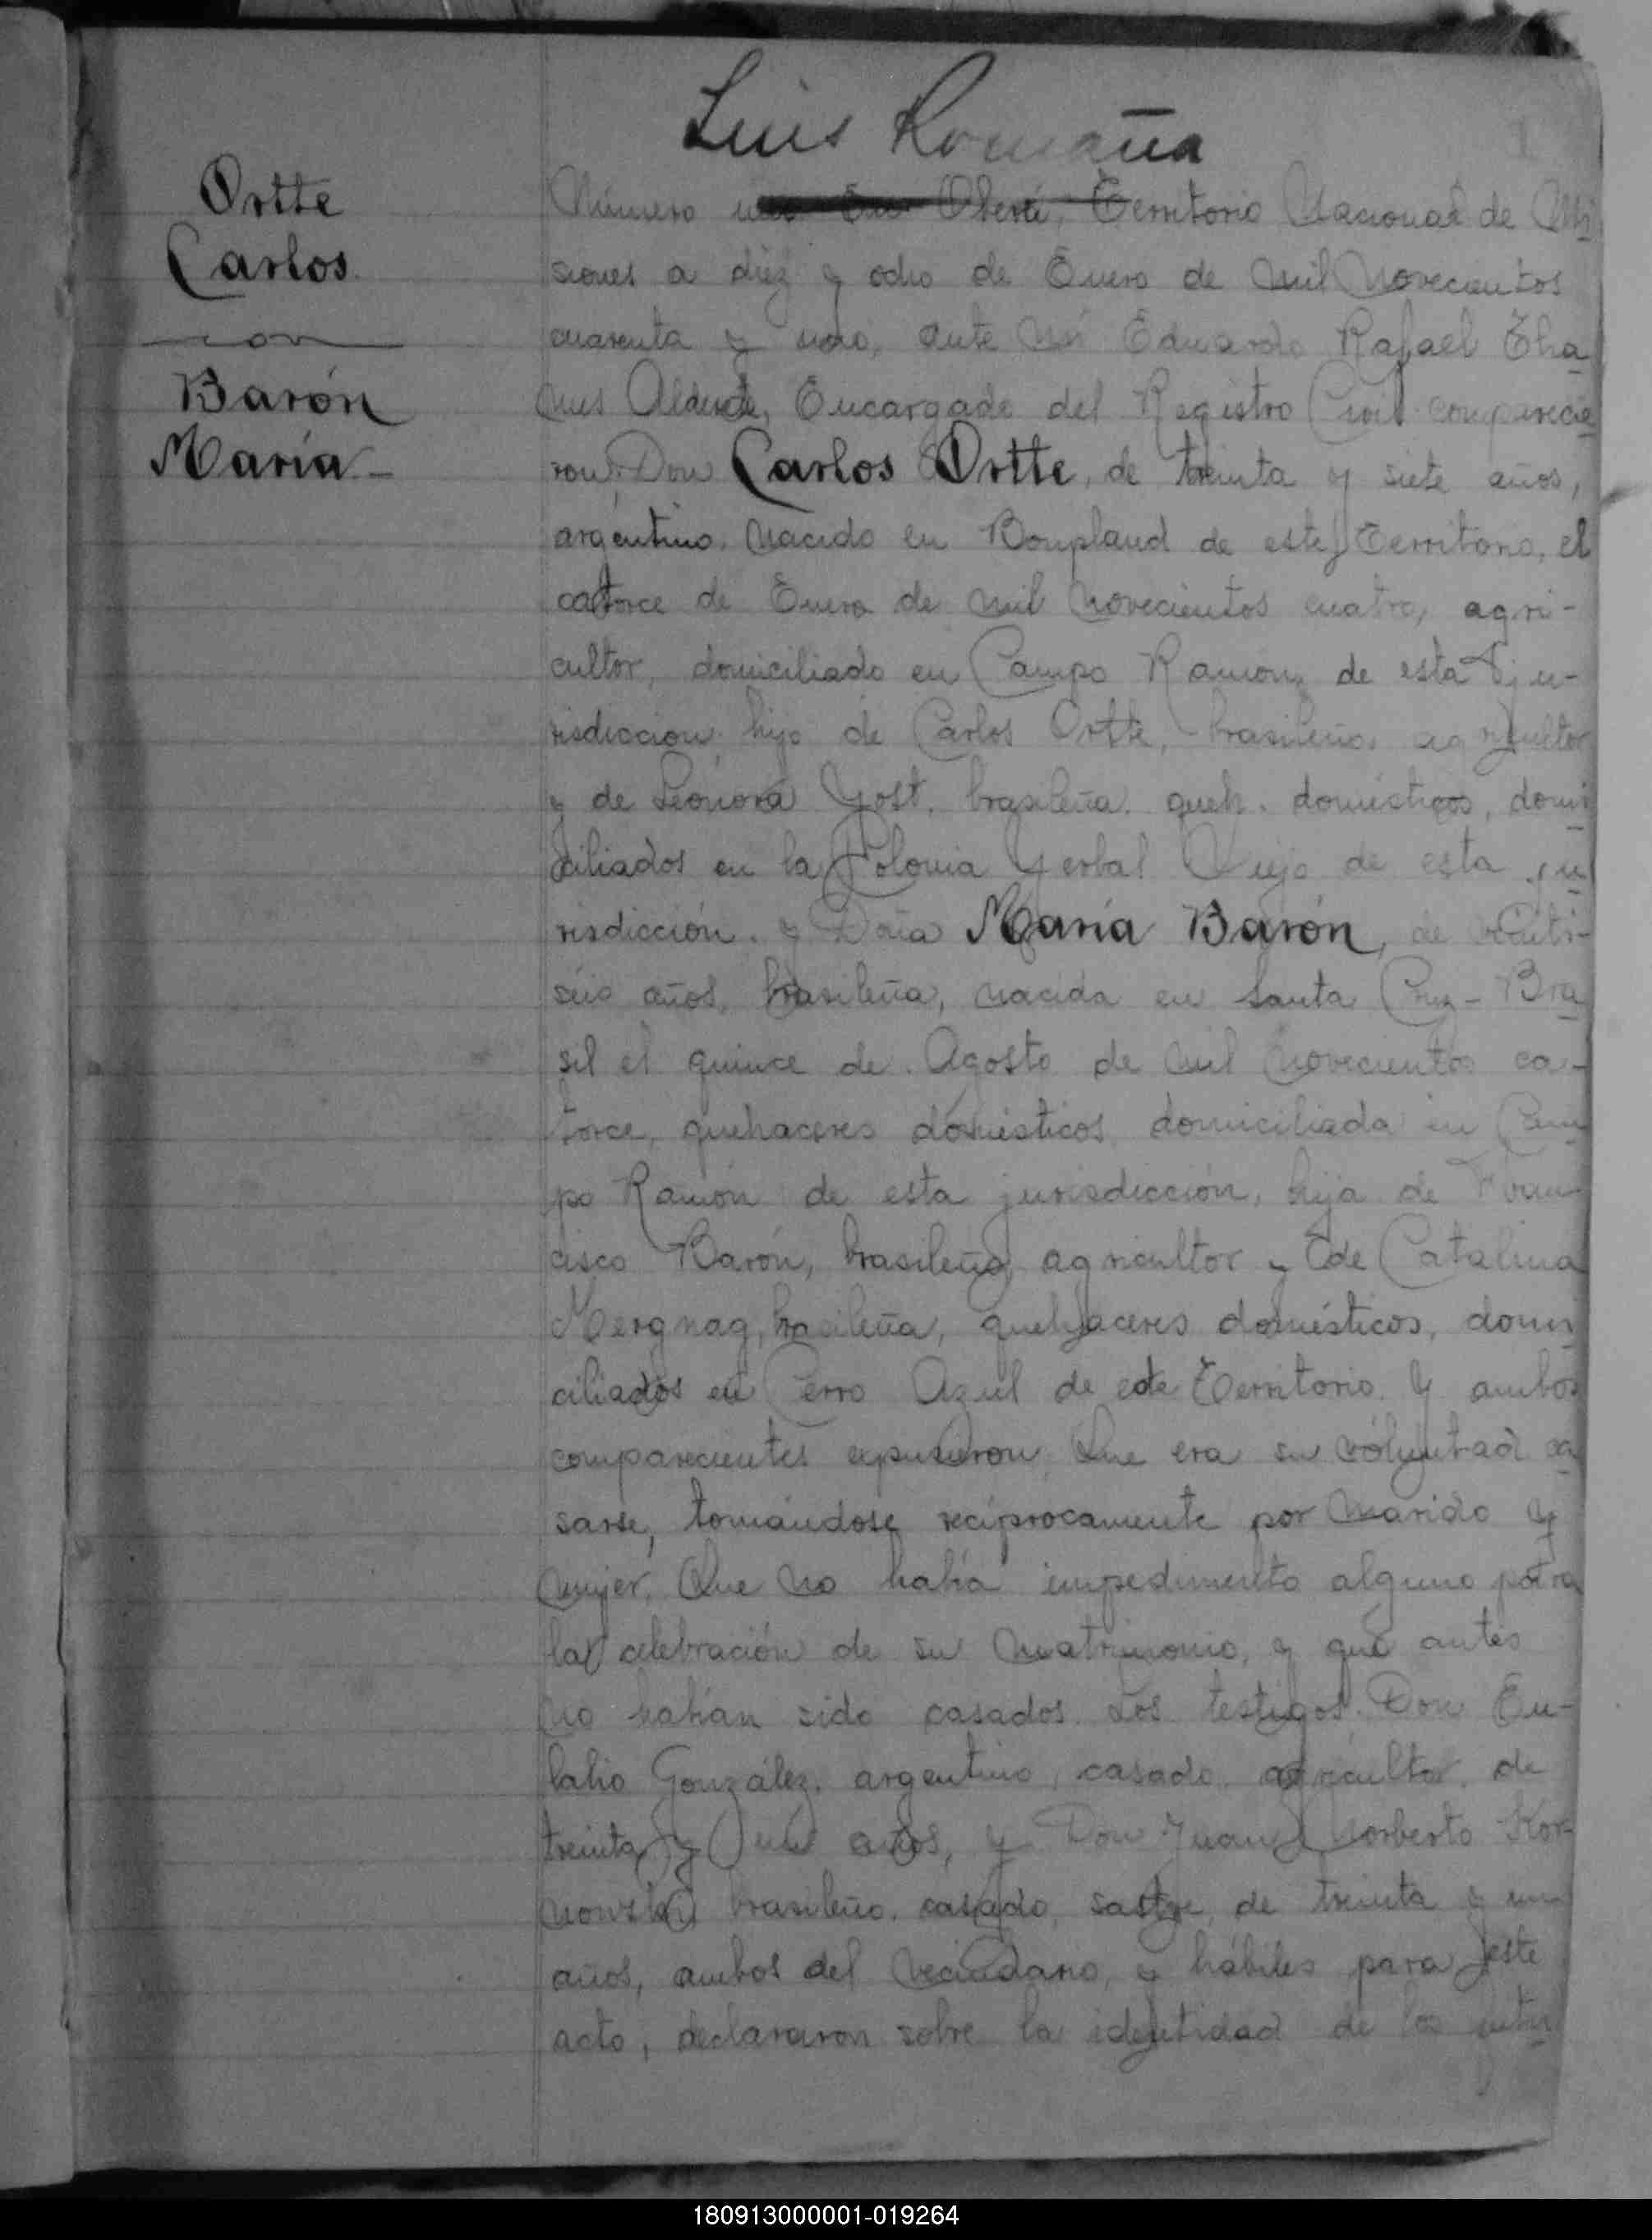 Luis Romaña
1
Ortte
Carlos
con
Barón
María
Número uno En Oberá, Territorio Nacional de Mi
siones a diez y ocho de Enero de mil novecientos
cuarenta y uno, ante mi Eduardo Rafael
Encargado del Registro Civil comparecie
ron: Don Carlos Ortte, de treinta y siete años,
argentino, nacido en Bonpland de este Territorio, el
catorce de Enero de mil novecientos cuatro, agri-
cultor, domiciliado en Campo Ramón, de esta ju-
risdiccion, hijo de Carlos Ortte, brasileño, agricultor
y de Leonora Yost, brasileña, queh. domésticos, domi
ciliados en la Colonia Yerbal Viejo de esta ju
risdicción. y Doña María Barón, de veinti-
séis años, brasileña, nacida en Santa Cruz - Bra
sil el quince de Agosto de mil novecientos ca-
torce, quehaceres domésticos, domiciliada en Cam
po Ramón de esta jurisdicción, hija de Fran
cisco Barón, brasileño, agricultor y de Catalina
Mergnag, brasileña, quehaceres domésticos, domi
ciliados en Cerro Azul de este Territorio. Y ambos
comparecientes expusieron: Que era su voluntad ca
sarse, tomándose reciprocamente por marido y
mujer, Que no había impedimento alguno para
la celebración de su matrimonio, y que antes
no habían sido casados. Los testigos: Don Eu-
lalio González, argentino, casado, agricultor, de
treinta y un años, y Don Juan Norberto Kor-
nowski, brasileño, casado, sastre, de treinta y un
años, ambos del vecindario, y hábiles para este
acto, declararon sobre la identidad de los futu
180913000001-019264